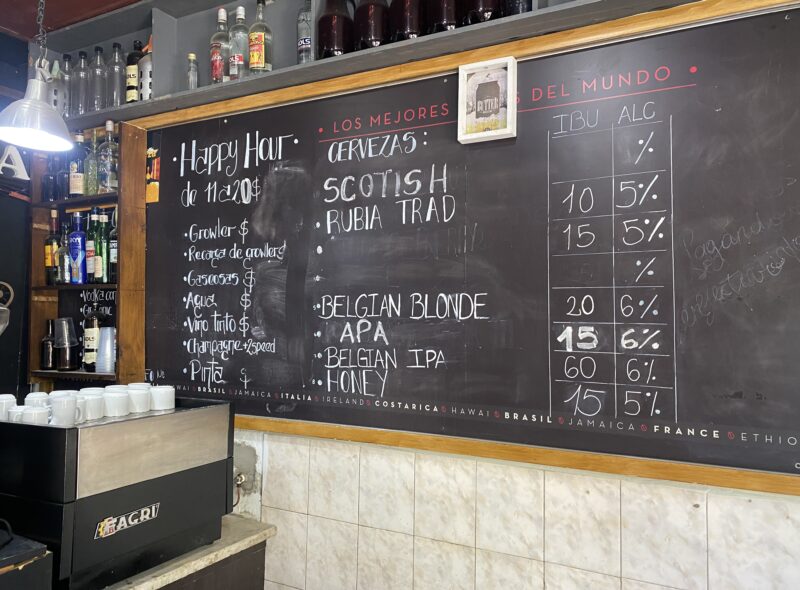 LOS MEJORES
S DEL MUNDO
BITTER
Happy Hour
de 11 a 20$
Growler $
Recarga de growlers
Gaseosas $
Agua $
Vino tinto $
Champagne+2speed
Pinta $
CERVEZAS:
SCOTISH
RUBIA TRAD
BELGIAN BLONDE
APA
BELGIAN IPA
HONEY
IBU ALC
%
10 5%
15 5%
%
20 6%
15 6%
60 6%
15 5%
Pagando
AWAI BRASIL JAMAICA ITALIA IRELAND COSTARICA HAWAI BRASIL JAMAICA FRANCE ETHIO
Vodka con
A
FAGRI